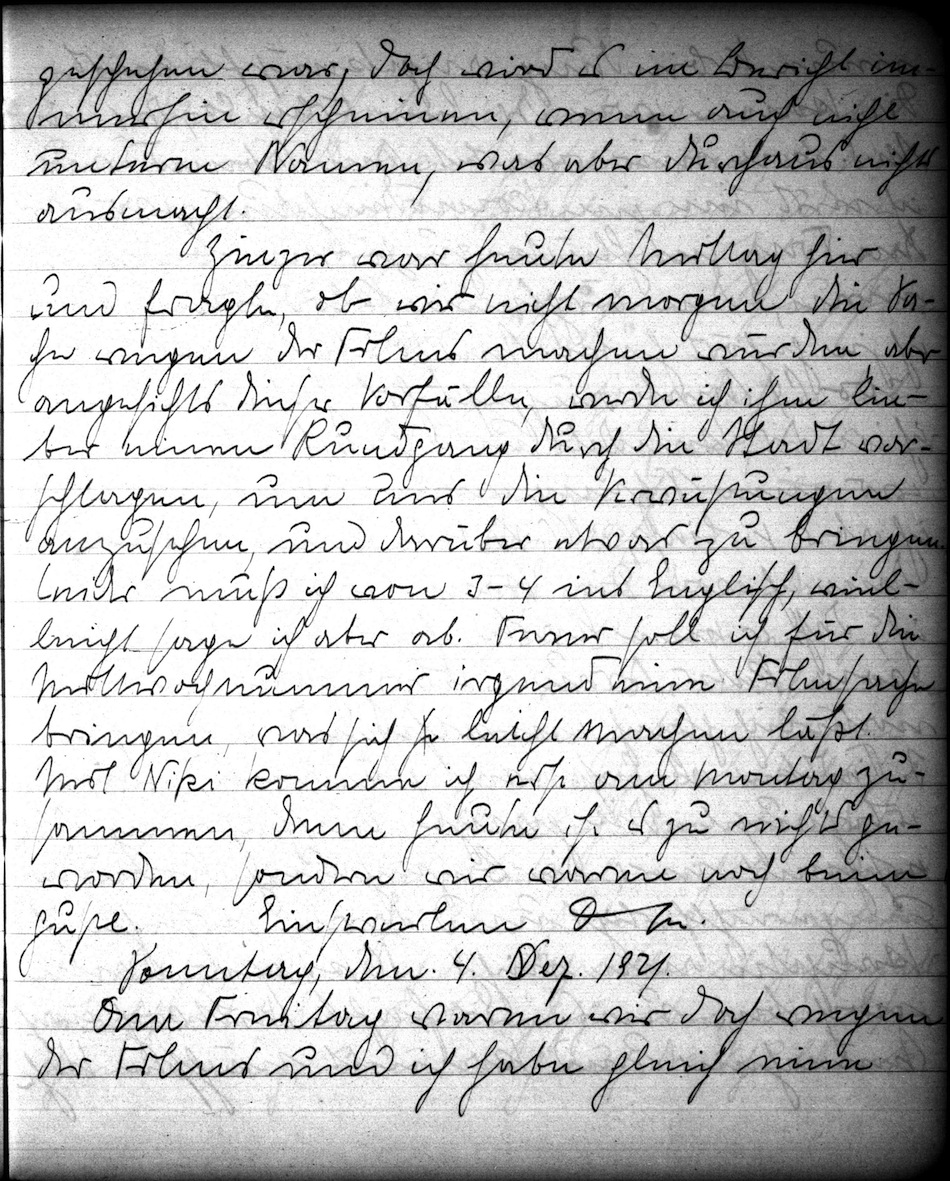 geschehen war, doch wird es im Bericht im-
merhin erscheinen, wenn auch nicht
unterm Namen, was aber durchaus nichts
ausmacht.
Zinzer war heute Mittag hier
und fragte, ob wir nicht morgen die Sa-
che wegen der Films machen würden, aber
angesichts dieser Vorfälle, werde ich ihm lie-
ber einen Rundgang durch die Stadt vor-
schlagen, um uns die Verwüstungen
anzusehen, und darüber etwas zu bringen
leider muß ich von 3-4 ins Englisch, viel-
leicht sage ich aber ab. Ferner soll ich für die
Mittwochnummer irgend eine Filmsache
bringen, was sich leicht machen läßt.
Mit Niki komme ich erst am Montag zu-
sammen, denn heute ist es zu nichts ge-
worden, sondern wir waren noch beim
Einstweilen
Sonntag, den. 4. Dez. 1921.
Am Freitag waren wir doch wegen
der Films und ich habe gleich eine